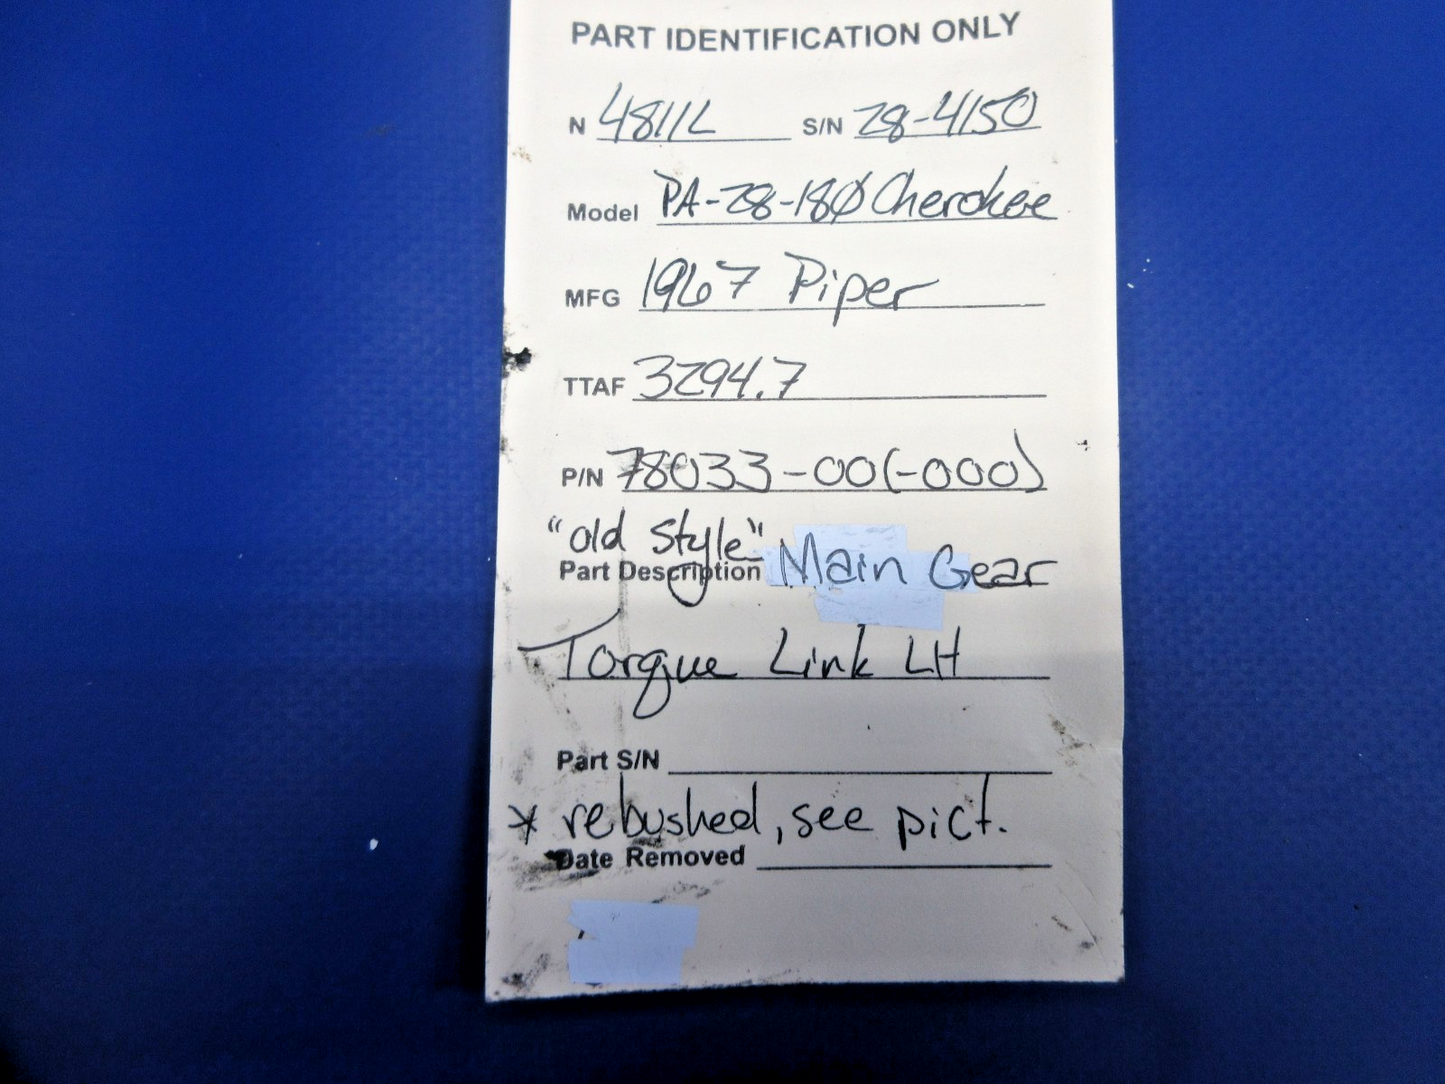 PART IDENTIFICATION ONLY
N 4811L S/N 28-4150
Model PA-28-180 Cherokee
MFG 1967 Piper
TTAF 3294.7
P/N 78033-00(-000)
"old style"
Part Description Main Gear
Torque Link LH
Part S/N
* rebushed, see pict.
Date Removed